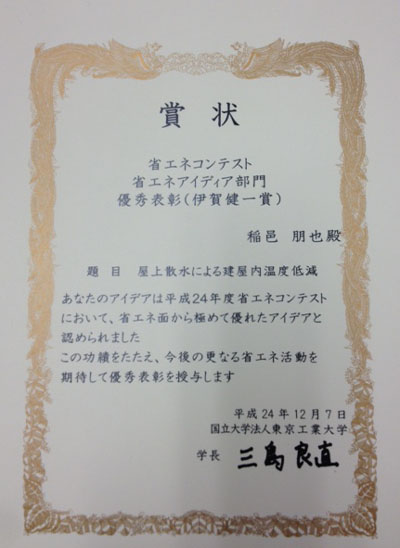 賞状
省エネコンテスト
省エネアイディア部門
優秀表彰(伊賀健一賞)
稲邑 朋也殿
題目 屋上散水による建屋内温度低減
あなたのアイデアは平成24年度省エネコンテスト
において、省エネ面から極めて優れたアイデアと
認められました
この功績をたたえ、今後の更なる省エネ活動を
期待して優秀表彰を授与します
平成24年12月7日
国立大学法人東京工業大学
学長 三島良直